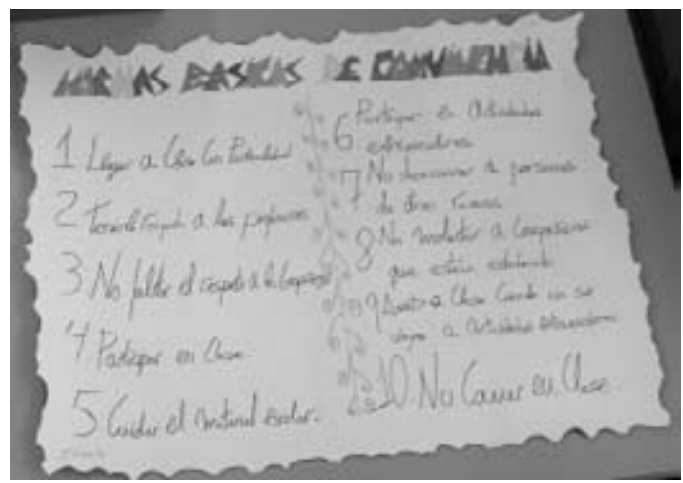 NORMAS BASICAS DE CONVIVENCIA
1 Llegar a Clase Con Puntualidad
2 Tener respeto a los profesores
3 No faltar el respeto a los Compañeros
4 Participar en Clase
5 Cuidar el material escolar.
6 Participar en Actividades
extraescolares
7 No a personas
de otras razas
8 No molestar a Compañeros
que estén
9 a Clase Cuando no se
vaya a Actividades extraescolares
10. No Comer en Clase.